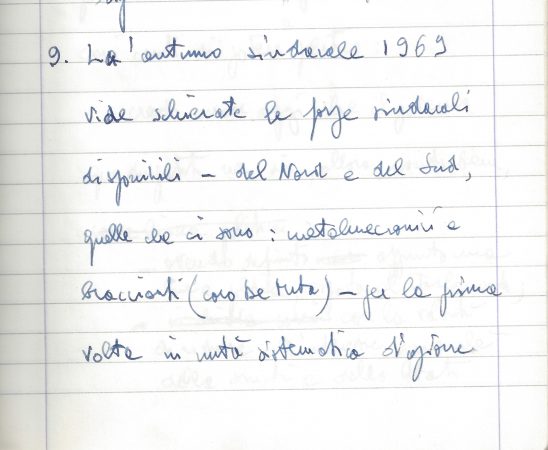 9. L'autunno sindacale 1969
vide schierate le forze sindacali
disponibili – del Nord e del Sud,
quelle che ci sono: metalmeccanici e
braccianti ( ) – per la prima
volta in unità sistematica d'azione